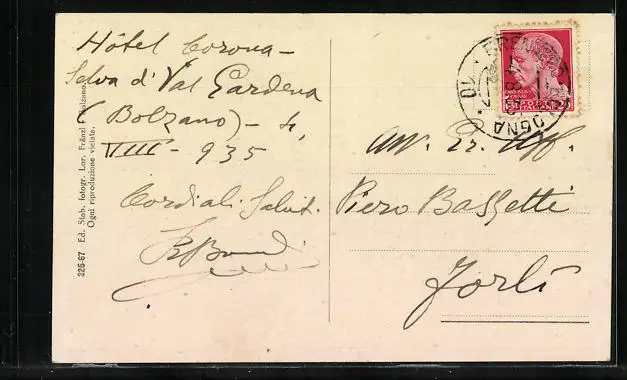 Hôtel Corona -
Selva d' Val Gardena
(Bolzano) - 4,
VIII - 935
Cordiali Saluti.
326-67 Ed. Stab. fotogr. Lor. Fränzl Bolzano
Ogni riproduzione vietata.
POSTE
ITALIANE
20
Avv. Uff.
Piero Bassetti
Forlì